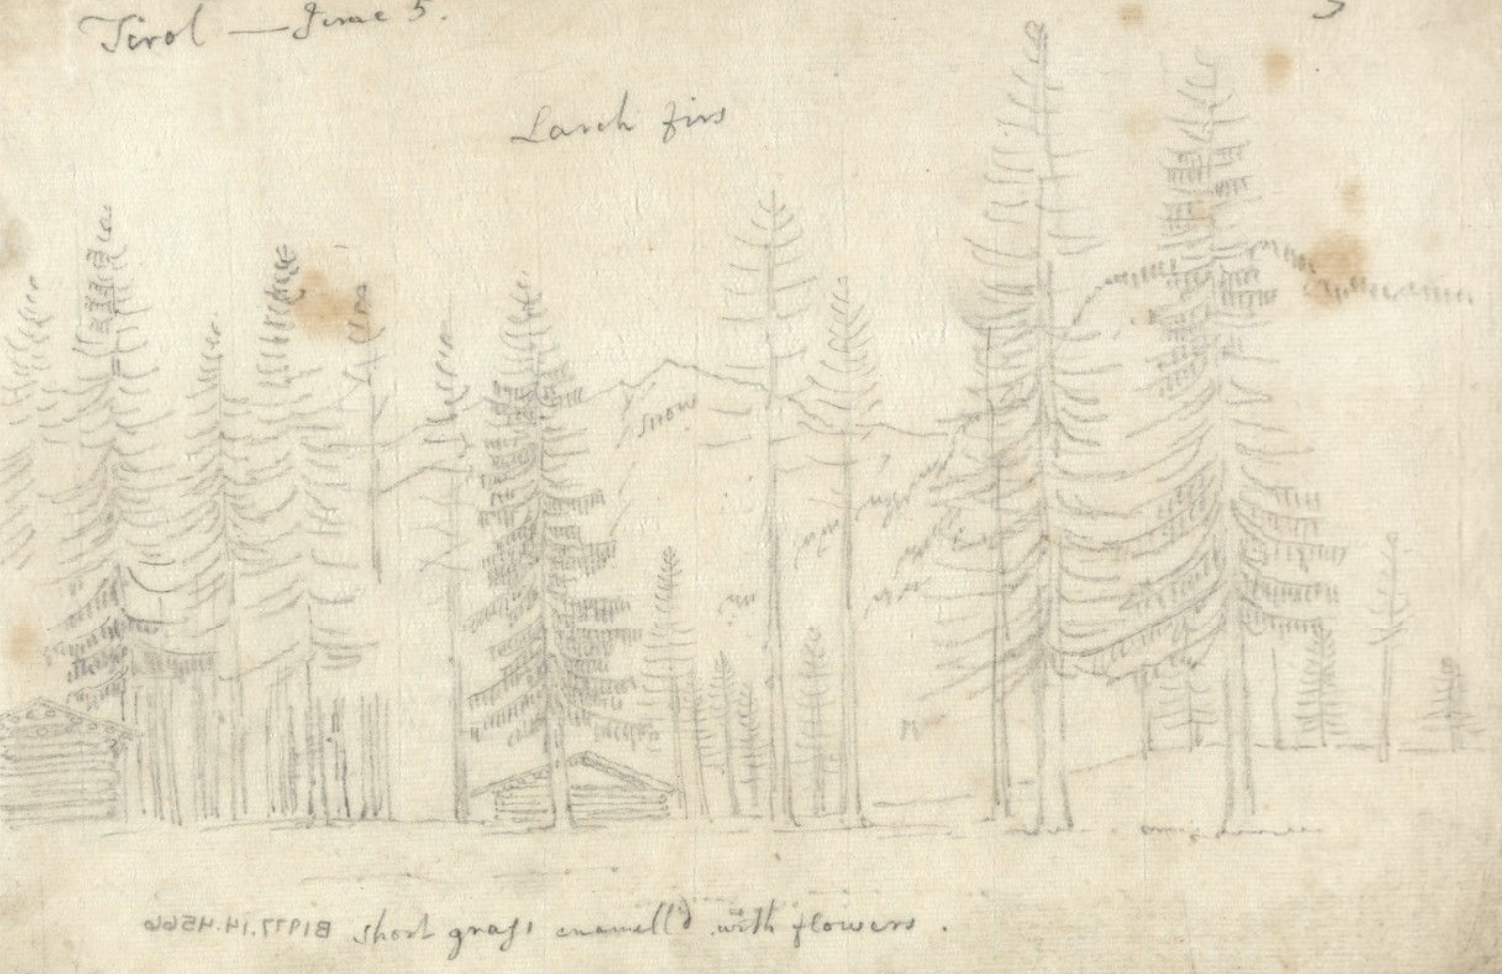 Tirol — June 5.
Larch firs
snow
B1977.14.4566
short grass enamell'd with flowers.